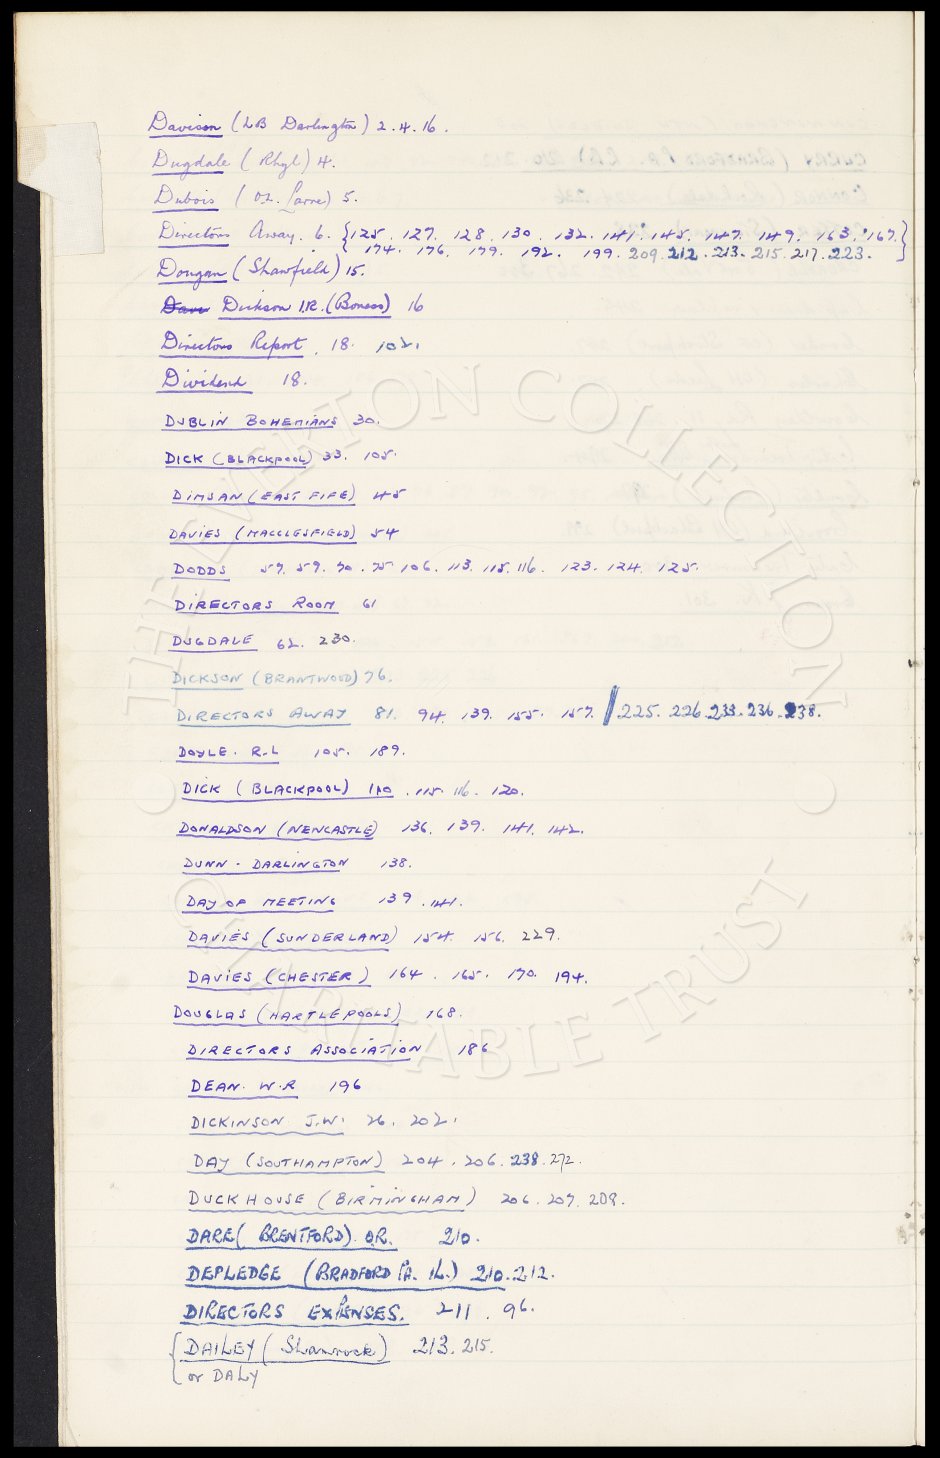 Davison (LB Darlington) 2.4.16.
Dugdale (Rhyl) 4.
Dubois (O.L. Larne) 5.
Directors Away. 6. {125. 127. 128. 130. 132. 141. 145. 147. 149. 163. 167.}
174. 176. 179. 192. 199. 209. 212. 213. 215. 217. 223.
Dougan (Shawfield) 15.
Dickson I.R. (Boness) 16
Directors Report. 18. 102.
Dividend 18.
DUBLIN BOHEMIANS 30.
DICK (BLACKPOOL) 33. 105.
DIMSAN (EAST FIFE) 45
DAVIES (MACCLESFIELD) 54
DODDS 57. 59. 70. 75. 106. 113. 115. 116. 123. 124. 125.
DIRECTORS ROOM 61
DUGDALE 62. 230.
DICKSON (BRANTWOOD) 76.
DIRECTORS AWAY 81. 94. 139. 155. 157. / 225. 226. 233. 236. 238.
DOYLE. R.L 105. 189.
DICK (BLACKPOOL) 110. 115. 116. 120.
DONALDSON (NEWCASTLE) 136. 139. 141. 142.
DUNN - DARLINGTON 138.
DAY OF MEETING 139. 141.
DAVIES (SUNDERLAND) 154. 156. 229.
DAVIES (CHESTER) 164. 165. 170. 194.
DOUGLAS (HARTLEPOOLS) 168.
DIRECTORS ASSOCIATION 186
DEAN. W.R 196
DICKINSON J.W. 26. 202.
DAY (SOUTHAMPTON) 204. 206. 238. 272.
DUCKHOUSE (BIRMINGHAM) 206. 207. 208.
DARE (BRENTFORD). O.R. 210.
DEPLEDGE (BRADFORD P.A. I.L.) 210. 212.
DIRECTORS EXPENSES. 211. 96.
{DAILEY (Shamrock) 213. 215.
or DALY
THE EVERTON COLLECTION
CHARITABLE TRUST